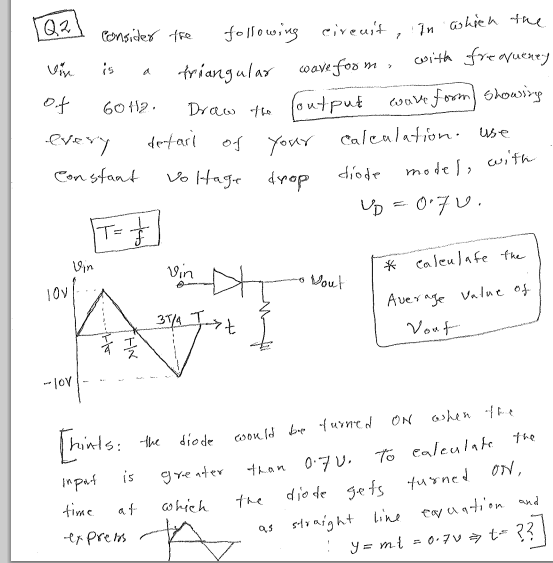 Q2 Consider the following circuit, In which the
Vin is a triangular waveform, with frequency
of 60Hz. Draw the output waveform showing
every detail of your calculation. use
Constant voltage drop diode model, with
VD = 0.7V.
T = 1/f
Vin
10V
-10V
T/4
T/2
3T/4
T
t
Vin
Vout
* calculate the
Average value of
Vout
[hints: the diode would be turned ON when the
input is greater than 0.7V. To calculate the
time at which the diode gets turned ON,
express as straight line equation and
y = mt = 0.7V ⇒ t = ??]